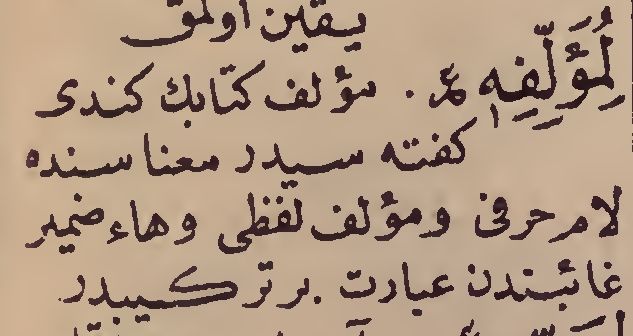 يقين اولمق
لِمُؤَلِّفِهِ ع. مؤلف كتابك كندى
كفته سيدر معناسنده
لام حرفى ومؤلف لفظى وهاء ضمير
غائبندن عبارت بر تركيبدر.